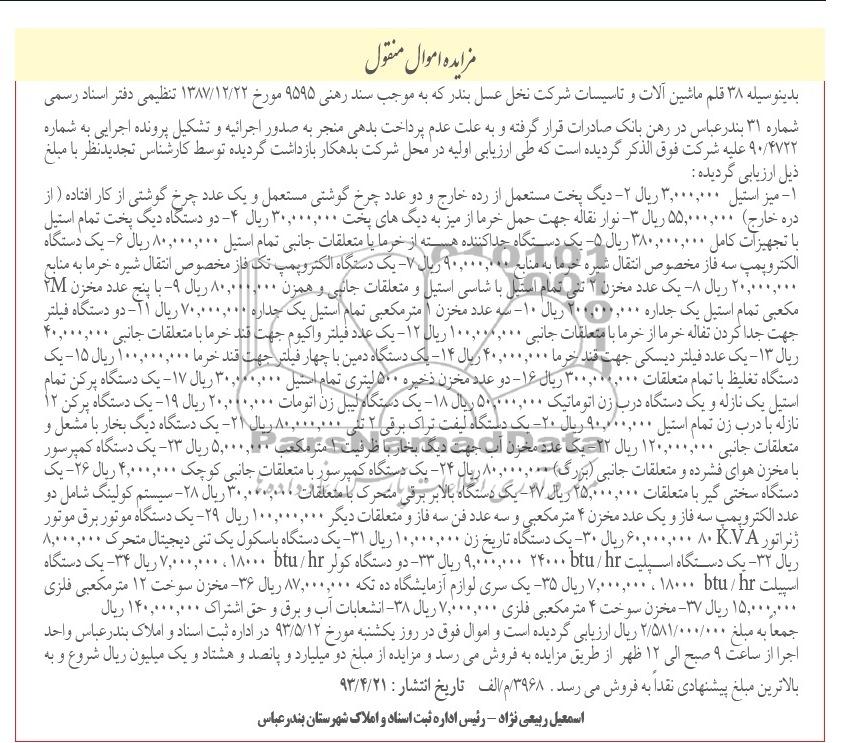 مزایده اموال منقول
بدینوسیله ۳۸ قلم ماشین آلات و تاسیسات شرکت نخل عسل بندر که به موجب سند رهنی ۹۵۹۵ مورخ ۱۳۸۷/۱۲/۲۲ تنظیمی دفتر اسناد رسمی
شماره ۳۱ بندرعباس در رهن بانک صادرات قرار گرفته و به علت عدم پرداخت بدهی منجر به صدور اجرائیه و تشکیل پرونده اجرایی به شماره
۹۰/۴۷۲۲ علیه شرکت فوق الذکر گردیده است که طی ارزیابی اولیه در محل شرکت بدهکار بازداشت گردیده توسط کارشناس تجدیدنظر با مبلغ
ذیل ارزیابی گردیده :
۱- میز استیل ۳,۰۰۰,۰۰۰ ریال ۲- دیگ پخت مستعمل از رده خارج و دو عدد چرخ گوشتی مستعمل و یک عدد چرخ گوشتی از کار افتاده ( از
دره خارج) ۵۵,۰۰۰,۰۰۰ ریال ۳- نوار نقاله جهت حمل خرما از میز به دیگ های پخت ۳۰,۰۰۰,۰۰۰ ریال ۴- دو دستگاه دیگ پخت تمام استیل
با تجهیزات کامل ۳۸۰,۰۰۰,۰۰۰ ریال ۵- یک دستگاه جداکننده هسته از خرما یا متعلقات جانبی تمام استیل ۸۰,۰۰۰,۰۰۰ ریال ۶- یک دستگاه
الکتروپمپ سه فاز مخصوص انتقال شیره خرما به منابع ۹۰,۰۰۰,۰۰۰ ریال ۷- یک دستگاه الکتروپمپ تک فاز مخصوص انتقال شیره خرما به منابع
۲۰,۰۰۰,۰۰۰ ریال ۸- یک عدد مخزن ۲ تنی تمام استیل با شاسی استیل و متعلقات جانبی و همزن ۸۰,۰۰۰,۰۰۰ ریال ۹- با پنج عدد مخزن ۲M
مکعبی تمام استیل یک جداره ۲۰۰,۰۰۰,۰۰۰ ریال ۱۰- سه عدد مخزن ۱ مترمکعبی تمام استیل یک جداره ۷۰,۰۰۰,۰۰۰ ریال ۱۱- دو دستگاه فیلتر
جهت جدا کردن تفاله خرما از خرما با متعلقات جانبی ۱۰۰,۰۰۰,۰۰۰ ریال ۱۲- یک عدد فیلتر واکیوم جهت قند خرما با متعلقات جانبی ۴۰,۰۰۰,۰۰۰
ریال ۱۳- یک عدد فیلتر دیسکی جهت قند خرما ۴۰,۰۰۰,۰۰۰ ریال ۱۴- یک دستگاه دمین با چهار فیلتر جهت قند خرما ۱۰۰,۰۰۰,۰۰۰ ریال ۱۵- یک
دستگاه تغلیظ با تمام متعلقات ۳۰۰,۰۰۰,۰۰۰ ریال ۱۶- دو عدد مخزن ذخیره ۵۰۰ لیتری تمام استیل ۳۰,۰۰۰,۰۰۰ ریال ۱۷- یک دستگاه پرکن تمام
استیل یک نازله و یک دستگاه درب زن اتوماتیک ۵۰,۰۰۰,۰۰۰ ریال ۱۸- یک دستگاه لیبل زن اتومات ۲۰,۰۰۰,۰۰۰ ریال ۱۹- یک دستگاه پرکن ۱۲
نازله با درب زن تمام استیل ۹۰,۰۰۰,۰۰۰ ریال ۲۰- یک دستگاه لیفت تراک برقی ۲ تنی ۸۰,۰۰۰,۰۰۰ ریال ۲۱- یک دستگاه دیگ بخار با مشعل و
متعلقات جانبی ۱۲۰,۰۰۰,۰۰۰ ریال ۲۲- یک عدد مخزن آب جهت دیگ بخار با ظرفیت مترمکعب ۵,۰۰۰,۰۰۰ ریال ۲۳- یک دستگاه کمپرسور
با مخزن هوای فشرده و متعلقات جانبی (بزرگ) ۸۰,۰۰۰,۰۰۰ ریال ۲۴- یک دستگاه کمپرسور با متعلقات جانبی کوچک ۴,۰۰۰,۰۰۰ ریال ۲۶- یک
دستگاه سختی گیر با متعلقات ۲۵,۰۰۰,۰۰۰ ریال ۲۷- یک دستگاه بالابر برقی متحرک با متعلقات ۳۰,۰۰۰,۰۰۰ ریال ۲۸- سیستم کولینگ شامل دو
عدد الکتروپمپ سه فاز و یک عدد مخزن ۴ مترمکعبی و سه عدد فن سه فاز و متعلقات دیگر ۱۰۰,۰۰۰,۰۰۰ ریال ۲۹- یک دستگاه موتور برق موتور
ژنراتور ۸۰ K.V.A ۶۰,۰۰۰,۰۰۰ ریال ۳۰- یک دستگاه تاریخ زن ۱۰,۰۰۰,۰۰۰ ریال ۳۱- یک دستگاه باسکول یک تنی دیجیتال متحرک ۸,۰۰۰,۰۰۰
ریال ۳۲- یک دستگاه اسپلیت ۲۴۰۰۰ btu / hr ۹,۰۰۰,۰۰۰ ریال ۳۳- دو دستگاه کولر ۱۸۰۰۰ btu / hr ، ۷,۰۰۰,۰۰۰ ریال ۳۴- یک دستگاه
اسپیلت ۱۸۰۰۰ btu / hr ، ۷,۰۰۰,۰۰۰ ریال ۳۵- یک سری لوازم آزمایشگاه ده تکه ۸۷,۰۰۰,۰۰۰ ریال ۳۶- مخزن سوخت ۱۲ مترمکعبی فلزی
۱۵,۰۰۰,۰۰۰ ریال ۳۷- مخزن سوخت ۴ مترمکعبی فلزی ۷,۰۰۰,۰۰۰ ریال ۳۸- انشعابات آب و برق و حق اشتراک ۱۴۰,۰۰۰,۰۰۰ ریال
جمعاً به مبلغ ۲/۵۸۱/۰۰۰/۰۰۰ ریال ارزیابی گردیده است و اموال فوق در روز یکشنبه مورخ ۹۳/۵/۱۲ در اداره ثبت اسناد و املاک بندرعباس واحد
اجرا از ساعت ۹ صبح الی ۱۲ ظهر از طریق مزایده به فروش می رسد و مزایده از مبلغ دو میلیارد و پانصد و هشتاد و یک میلیون ریال شروع و به
بالاترین مبلغ پیشنهادی نقداً به فروش می رسد . ۳۹۶۸/م/الف تاریخ انتشار : ۹۳/۴/۲۱
اسمعیل ربیعی نژاد - رئیس اداره ثبت اسناد و املاک شهرستان بندرعباس
ParsNamadData